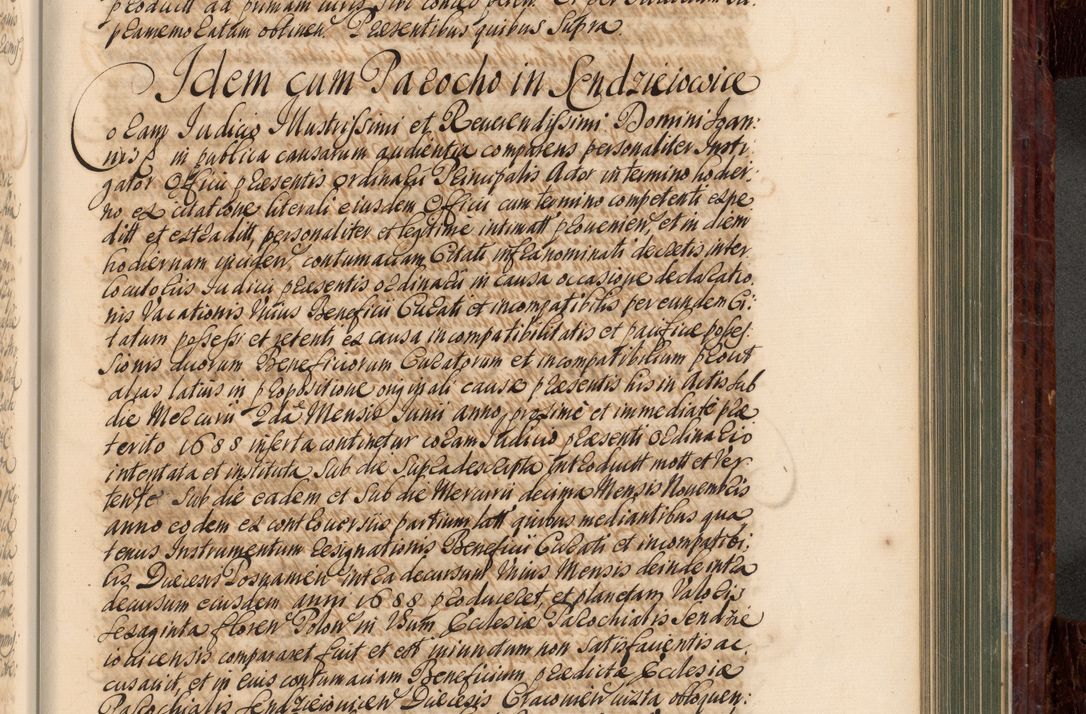 plamemoratam obtinen̄ Praesentibus quibus Supra.
Idem cum Parocho in Sendzieiowice
Coram Iudicio Illustrissimi et Reverendissimi Domini Joan:
nis p in publica causarum audientia comparens personaliter Insti:
gator Officii praesentis Ordinarii Principalis Actor in termino hodier:
no ex citatione literali eiusdem Officii cum termino competenti expe
ditt et extraditt, personaliter et legitime intimatt provenien̄, et in diem
hodiernam inciden̄ contumaciam Citati infranominati decretis inter
locutoriis Iudicii praesentis ordinarii in causa occasione declaratio
nis Vacationis Unius Beneficii Curati et incompatibilis per eundem Ci:
tatum possessi et retenti ex causa incompatibilitatis et pacificae posses:
sionis duorum Beneficiorum Curatorum et incompatibilium prout
alias latius in propositione originali causae praesentis his in Actis sub
die Mercurii 2da Mensis Iunii anno proxime et immediate prae
terito 1688 inserta continetur coram Iudicio praesenti ordinario
intentata et instituta sub die supradescripta introductt mott et ver:
tente sub die eadem et sub die Mercurii decima Mensis Novembris
anno eodem ex controversiis partium latt quibus mediantibus qua
tenus Instrumentum resignationis Beneficii Curati et incompatibi:
lis Diaecesis Posnanien̄ intra decursum Unius Mensis deinde intra
decursum eiusdem anni 1688 produceret, et planetam Valoris
sexaginta floren̄ Polon̄ in Usum Ecclesiae Parochialis Sendzie
iovicensis compararet fuit et est iniunctum non satisfacientis ac
cusavit, et in eius contumaciam Beneficium praedictae Ecclesiae
Parochialis Sendzieiovicen̄ Diaecesis Cracovien̄ iuxta obloquen: